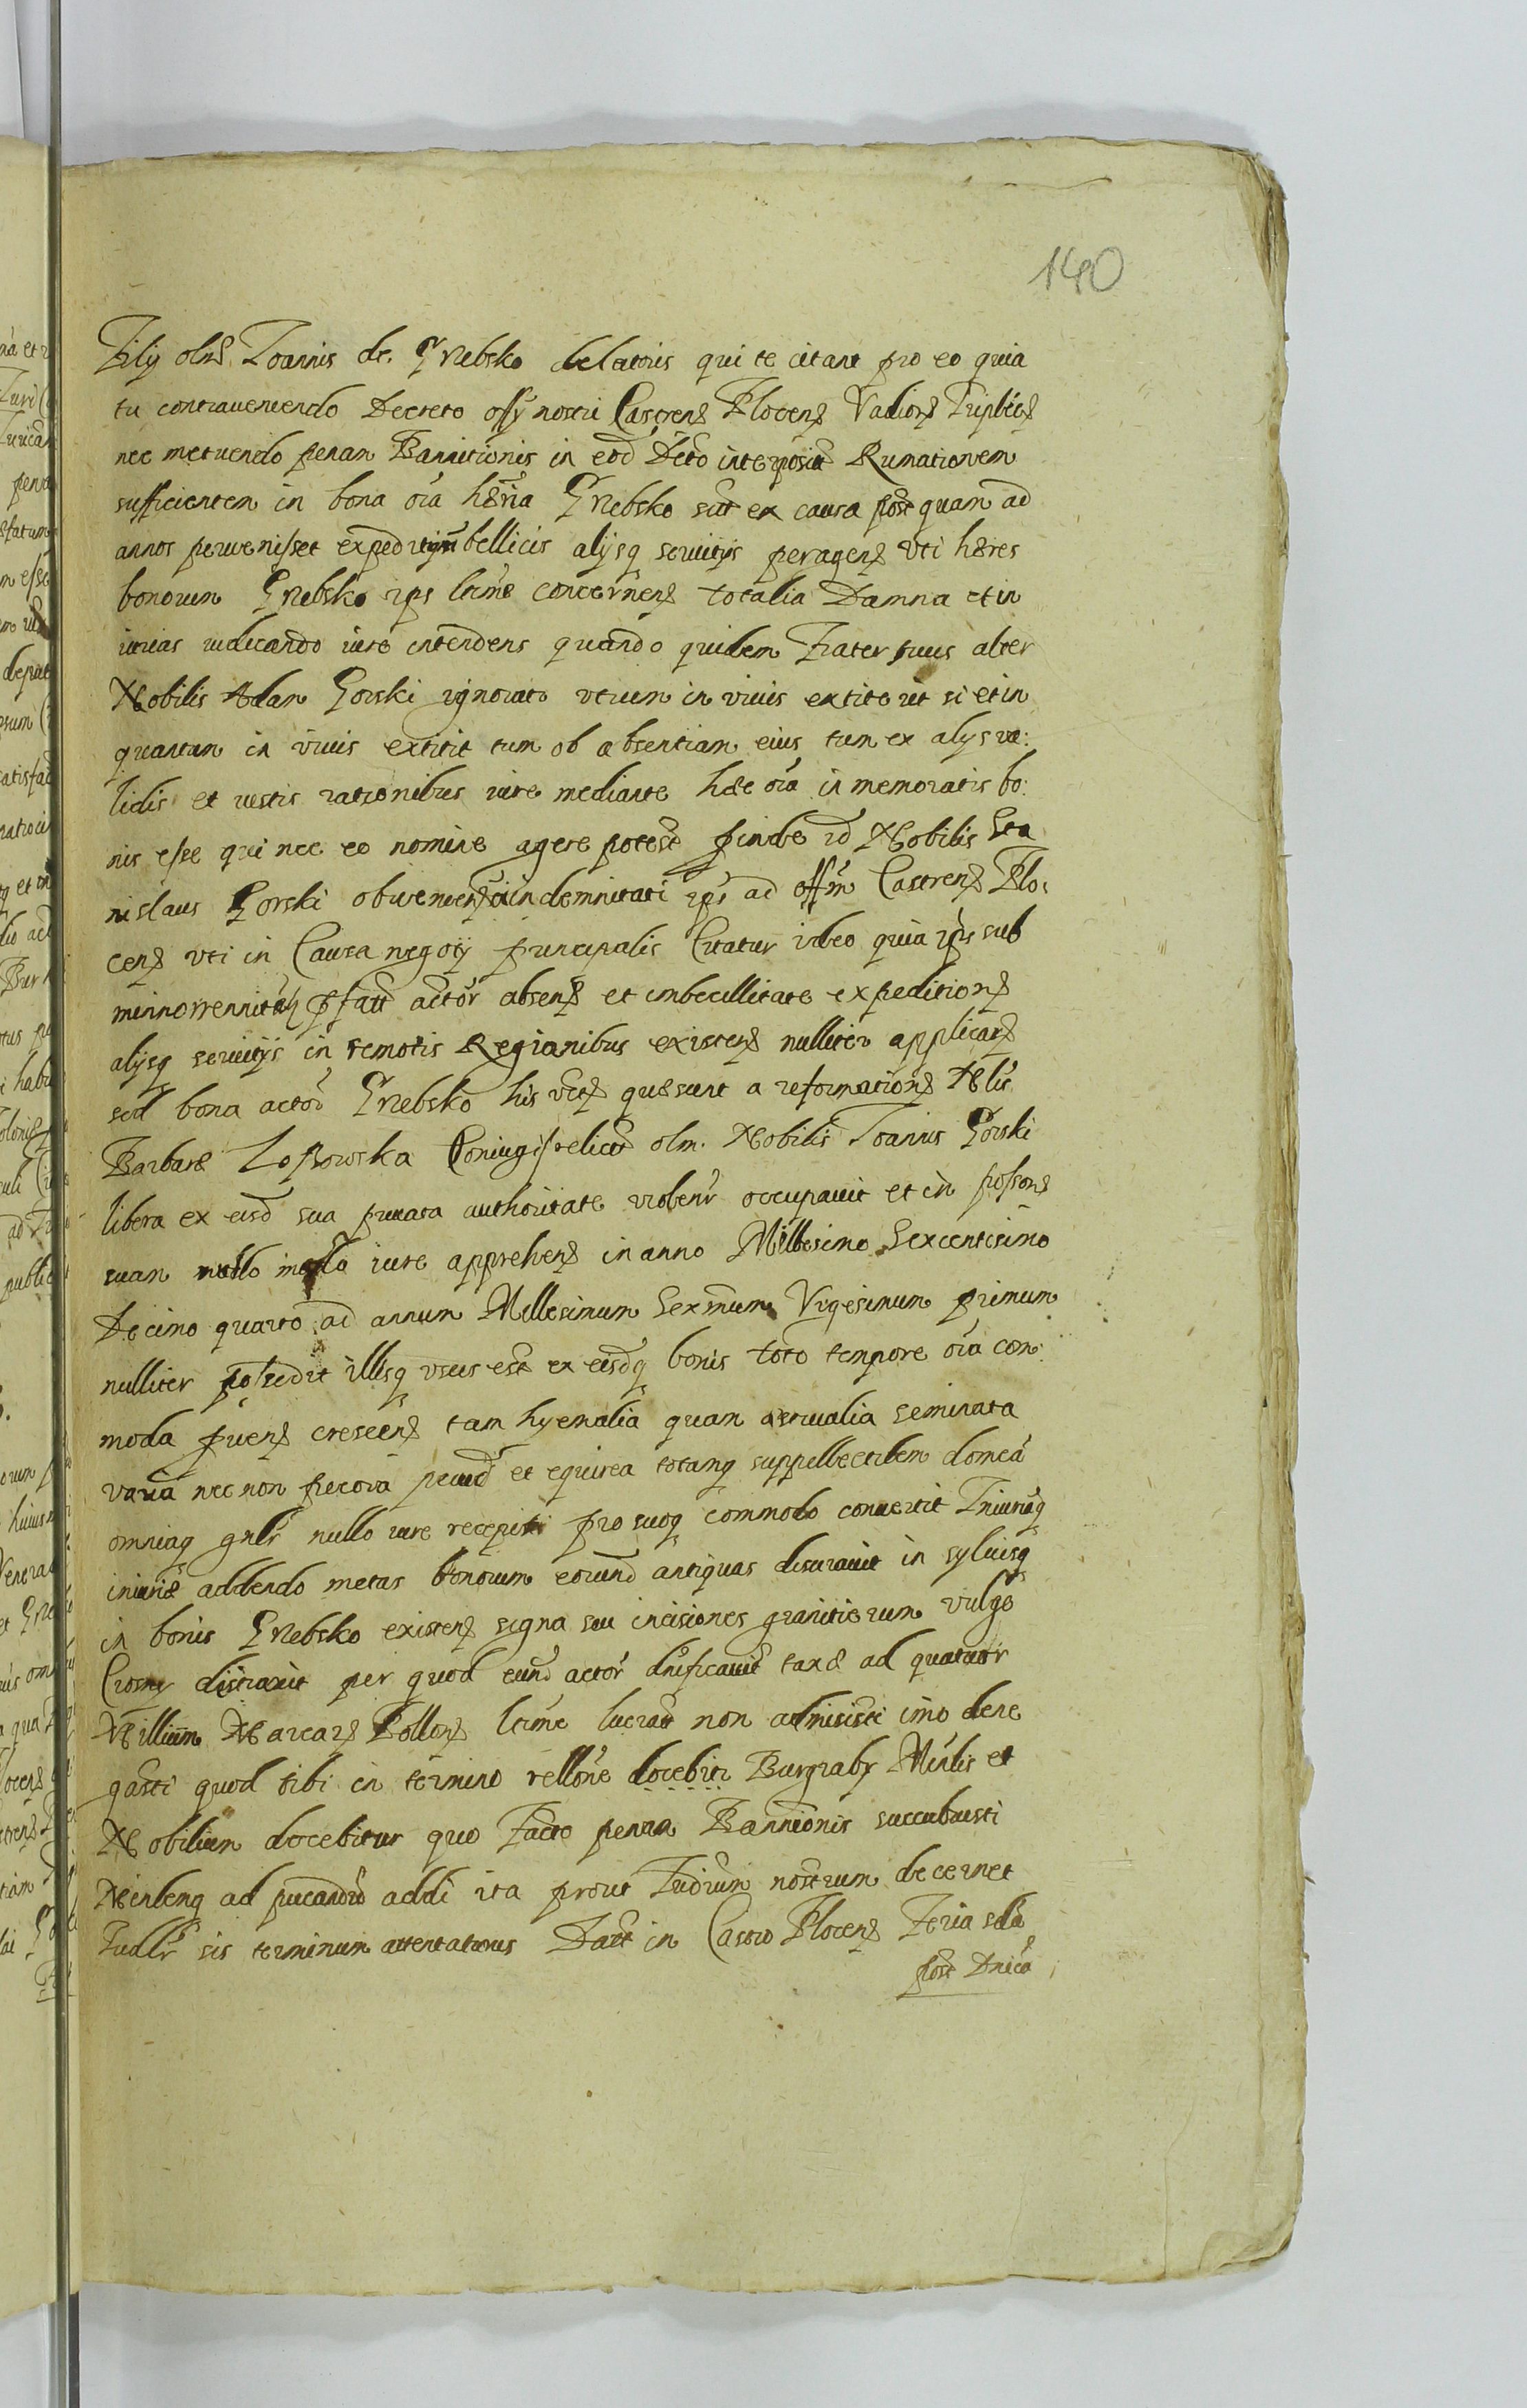 140
Filÿ olim Joannis de Grebsko delatoris qui te citant pro eo quia
tu contraveniendo Decreto offÿ nostri Castrens Plocens Vadions Triplicis
nec metuendo penam Bannitionis in eod Dcto interposit Rumationem
sufficientem in bona oia hdria Grebsko sua ex causa post quam ad
annos pervenisset bellicis alÿsq servitÿs peragens vti hæres
bonorum Grebsko ips ltime concernens totalia Damna et in
iurias iudicando iure intendens quando quidem Frater suus alter
Nobilis Adam Gorski ignorato vtrum in vivis extiterit si et in
quantum in vivis extitit tum ob absentiam eius tum ex alÿs va:
lidis et iustis rationibus iure mediante hæc oia in memoratis bo:
nis esse qui nec eo nomine agere potest proinde id Nobilis Sta
nislaus Gorski indemnitati ipsi ad offm Castrens Plo:
cens vti in Causa negotÿ principalis Citatur ideo quia ips sub
actor absens et imbecillitate expedition
alÿsq servitÿs in remotis Regionibus existens nulliter applicans
sed bona actor Grebsko his quæ sunt a reformations Nlis
Barbaræ Loßowska Coniugis relict olm. Nobilis Joannis Gorski
libera ex eisd sua privata authoritate violenr occupavit et in possons
suam nullo iure apprehens in anno Millesimo Sexcentesimo
Decimo quarto ad annum Millesimum Sexmum Vigesimum primum
nulliter possedit illisq vsus est ex eisdq bonis toto tempore oia com
moda pvens crescens tam hyemalia quam æstivalia seminata
varia nec non pecora pecud et equirea totamq suppellectilem domca
omniaq gnlr nullo iure recepit pro suoq commodo convertit Iniuriaq
iniuriæ addendo metas bonorum eorund antiquas in sylvisq
in bonis Grebsko existens signa seu incisiones granitierum vulgo
Ciosny distraxit per quod eund actor dnificavit taxæ ad quatuor
Millium Marcars Pollons ltime lucrat non admisisti imo dene
gasti quod tibi in termino rellone docebit Burgrabÿ Minlis et
Nobilium docebitur quo facto penam Bannionis succubuisti
ad addi ita prout Iudium nostrum decernet
Iudlr sis terminum attentaturus Datt in Castro Plocens Feria scda
post Dnica